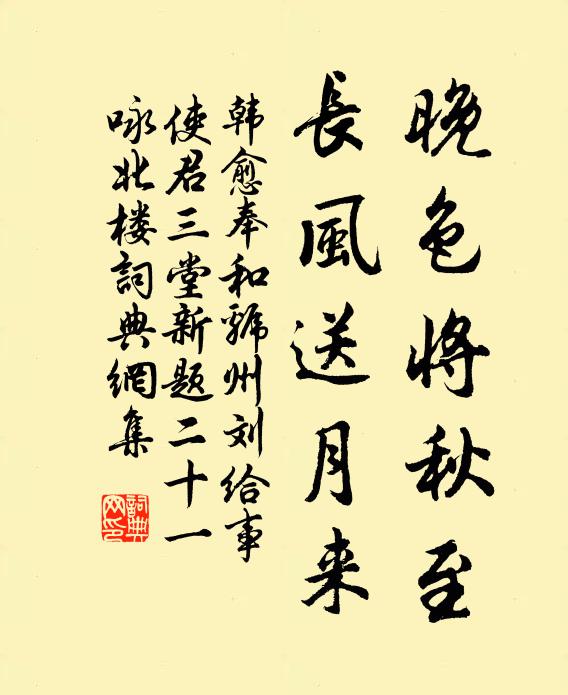 晚色将秋至
長風送月来
韩愈奉和虢州刘给事
使君三堂新题二十一
咏北楼詞典網集
詞典
网印